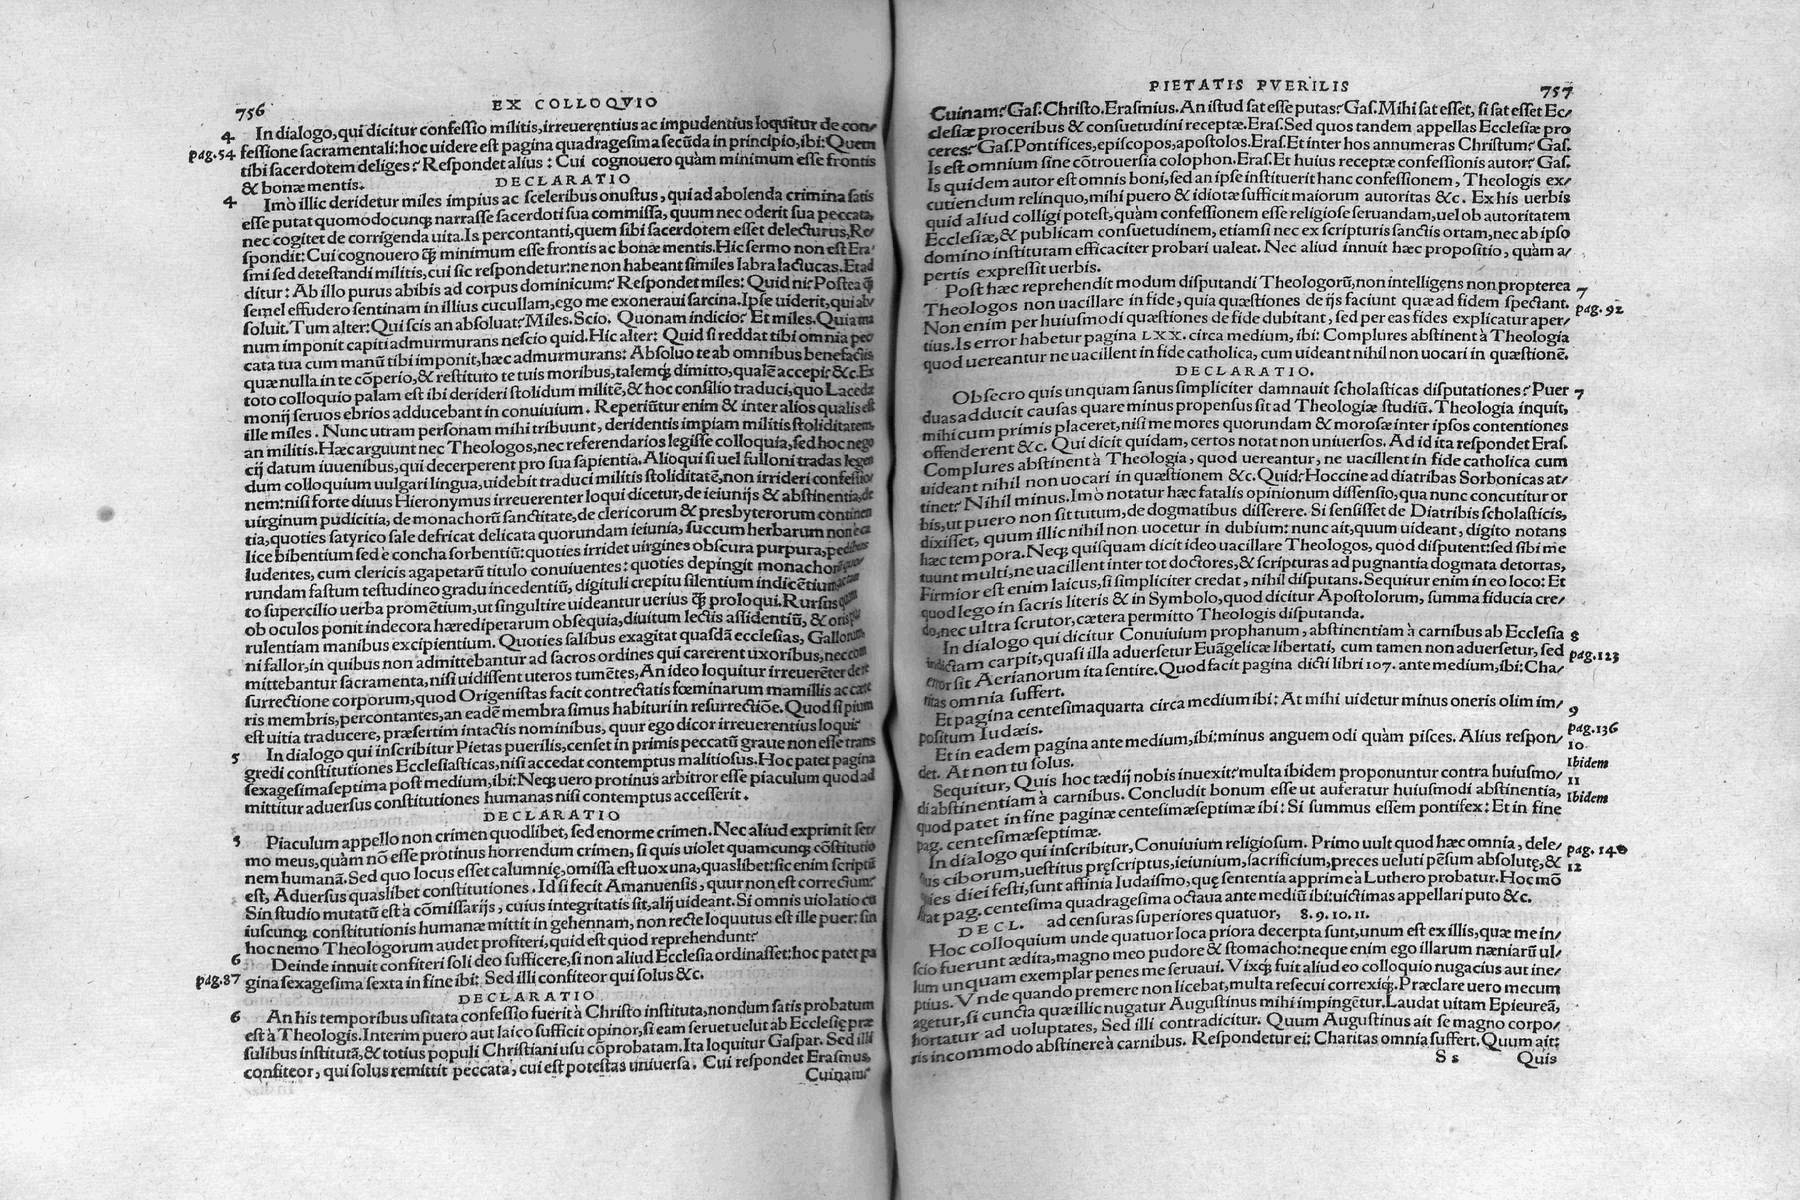 756
EX COLLOQVIO
4 In dialogo, qui dicitur confessio militis, irreuerentius ac impudentius loquitur de con/
pag. 54 fessione sacramentali: hoc uidere est pagina quadragesima secūda in principio, ibi: Quem
tibi sacerdotem deliges? Respondet alius: Cui cognouero quàm minimum esse frontis
& bonæ mentis.
DECLARATIO
4 Imò illic deridetur miles impius ac sceleribus onustus, qui ad abolenda crimina satis
esse putat quomodocunq; narrasse sacerdoti sua commissa, quum nec oderit sua peccata,
nec cogitet de corrigenda uita. Is percontanti, quem sibi sacerdotem esset delecturus, Re/
spondit: Cui cognouero q̃ minimum esse frontis ac bonæ mentis. Hic sermo non est Era/
smi sed detestandi militis, cui sic respondetur: ne non habeant similes labra lactucas. Et ad
ditur: Ab illo purus abibis ad corpus dominicum? Respondet miles: Quid ni? Postea q̃
semel effudero sentinam in illius cucullam, ego me exoneraui sarcina. Ipse uiderit, qui ab/
soluit. Tum alter: Qui scis an absoluat? Miles. Scio. Quonam indicio? Et miles. Quia ma
num imponit capiti admurmurans nescio quid. Hic alter: Quid si reddat tibi omnia pec
cata tua cum manū tibi imponit, hæc admurmurans: Absoluo te ab omnibus benefactis
quæ nulla in te cōperio, & restituto te tuis moribus, talemq; dimitto, qualē accepi? &c. Ex
toto colloquio palam est ibi derideri stolidum militē, & hoc consilio traduci, quo Laceda
monij seruos ebrios adducebant in conuiuium. Reperiūtur enim & inter alios qualis est
ille miles. Nunc utram personam mihi tribuunt, deridentis impiam militis stoliditatem,
an militis. Hæc arguunt nec Theologos, nec referendarios legisse colloquia, sed hoc nego
cij datum iuuenibus, qui decerperent pro sua sapientia. Alioqui si uel fulloni tradas legen
dum colloquium uulgari lingua, uidebit traduci militis stoliditatē, non irrideri confessio/
nem: nisi forte diuus Hieronymus irreuerenter loqui dicetur, de ieiunijs & abstinentia, de
uirginum pudicitia, de monachorū sanctitate, de clericorum & presbyterorum continen
tia, quoties satyrico sale defricat delicata quorundam ieiunia, succum herbarum non è ca
lice bibentium sed è concha sorbentiū: quoties irridet uirgines obscura purpura, pedibus
ludentes, cum clericis agapetarū titulo conuiuentes: quoties depingit monachorū quo/
rundam fastum testudineo gradu incedentiū, digituli crepitu silentium indicētium
to supercilio uerba promētium, ut singultire uideantur uerius q̃ proloqui. Rursus quam
ob oculos ponit indecora hæredipetarum obsequia, diuitum lectis assidentiū, & oris
rulentiam manibus excipientium. Quoties salibus exagitat quasdā ecclesias, Gallorum
ni fallor, in quibus non admittebantur ad sacros ordines qui carerent uxoribus, nec com
mittebantur sacramenta, nisi uidissent uteros tumētes, An ideo loquitur irreuerēter de re
surrectione corporum, quod Origenistas facit contrectatis fœminarum mamillis ac cæte
ris membris, percontantes, an eadē membra simus habituri in resurrectiōe. Quod si pium
est uitia traducere, præsertim intactis nominibus, quur ego dicor irreuerentius loqui?
5 In dialogo qui inscribitur Pietas puerilis, censet in primis peccatū graue non esse trans
gredi constitutiones Ecclesiasticas, nisi accedat contemptus malitiosus. Hoc patet pagina
sexagesima septima post medium, ibi: Neq; uero protinus arbitror esse piaculum quod ad
mittitur aduersus constitutiones humanas nisi contemptus accesserit.
DECLARATIO
5 Piaculum appello non crimen quodlibet, sed enorme crimen. Nec aliud exprimit ser/
mo meus, quàm nō esse protinus horrendum crimen, si quis uiolet quamcunq; cōstitutio
nem humanā. Sed quo locus esset calumnię, omissa est uox una, quaslibet: sic enim scriptū
est, Aduersus quaslibet constitutiones. Id si fecit Amanuensis, quur non est correctum?
Sin studio mutatū est à cōmissarijs, cuius integritatis sit, alij uideant. Si omnis uiolatio cu
iuscunq; constitutionis humanæ mittit in gehennam, non recte loquutus est ille puer: sin
hoc nemo Theologorum audet profiteri, quid est quod reprehendunt?
6 Deinde innuit confiteri soli deo sufficere, si non aliud Ecclesia ordinasset: hoc patet pa
pag. 87 gina sexagesima sexta in fine ibi: Sed illi confiteor qui solus &c.
DECLARATIO
6 An his temporibus usitata confessio fuerit à Christo instituta, nondum satis probatum
est à Theologis. Interim puero aut laico sufficit opinor, si eam seruet uelut ab Ecclesię præ
sulibus institutā, & totius populi Christiani usu cōprobatam. Ita loquitur Gaspar. Sed illi
confiteor, qui solus remittit peccata, cui est potestas uniuersa. Cui respondet Erasmus,
Cuinam?
PIETATIS PVERILIS
757
Cuinam? Gas. Christo. Erasmius. An istud sat esse putas? Gas. Mihi sat esset, si sat esset Ec/
clesiæ proceribus & consuetudini receptæ. Eras. Sed quos tandem appellas Ecclesiæ pro
ceres? Gas. Pontifices, episcopos, apostolos. Eras. Et inter hos annumeras Christum? Gas.
Is est omnium sine cōtrouersia colophon. Eras. Et huius receptæ confessionis autor? Gas.
Is quidem autor est omnis boni, sed an ipse instituerit hanc confessionem, Theologis ex/
cutiendum relinquo, mihi puero & idiotæ sufficit maiorum autoritas &c. Ex his uerbis
quid aliud colligi potest, quàm confessionem esse religiose seruandam, uel ob autoritatem
Ecclesiæ, & publicam consuetudinem, etiamsi nec ex scripturis sanctis ortam, nec ab ipso
domino institutam efficaciter probari ualeat. Nec aliud innuit hæc propositio, quàm a/
pertis expressit uerbis.
Post hæc reprehendit modum disputandi Theologorū, non intelligens non propterea 7
Theologos non uacillare in fide, quia quæstiones de ijs faciunt quæ ad fidem spectant. pag. 92
Non enim per huiusmodi quæstiones de fide dubitant, sed per eas fides explicatur aper/
tius. Is error habetur pagina LXX. circa medium, ibi: Complures abstinent à Theologia
quod uereantur ne uacillent in fide catholica, cum uideant nihil non uocari in quæstionē.
DECLARATIO.
Obsecro quis unquam sanus simpliciter damnauit scholasticas disputationes? Puer 7
duas adducit causas quare minus propensus sit ad Theologiæ studiū. Theologia inquit,
mihi cum primis placeret, nisi me mores quorundam & morosæ inter ipsos contentiones
offenderent &c. Qui dicit quidam, certos notat non uniuersos. Ad id ita respondet Eras.
Complures abstinent à Theologia, quod uereantur, ne uacillent in fide catholica cum
uideant nihil non uocari in quæstionem &c. Quid? Hoccine ad diatribas Sorbonicas at/
tinet? Nihil minus. Imò notatur hæc fatalis opinionum dissensio, qua nunc concutitur or
bis, ut puero non sit tutum, de dogmatibus disserere. Si sensisset de Diatribis scholasticis,
dixisset, quum illic nihil non uocetur in dubium: nunc ait, quum uideant, digito notans
hæc tempora. Neq; quisquam dicit ideo uacillare Theologos, quod disputent: sed sibi me
tuunt multi, ne uacillent inter tot doctores, & scripturas ad pugnantia dogmata detortas,
Firmior est enim laicus, si simpliciter credat, nihil disputans. Sequitur enim in eo loco: Et
quod lego in sacris literis & in Symbolo, quod dicitur Apostolorum, summa fiducia cre/
do, nec ultra scrutor, cætera permitto Theologis disputanda.
In dialogo qui dicitur Conuiuium prophanum, abstinentiam à carnibus ab Ecclesia 8
indictam carpit, quasi illa aduersetur Euāgelicæ libertati, cum tamen non aduersetur, sed pag. 123
error sit Aerianorum ita sentire. Quod facit pagina dicti libri 107. ante medium, ibi: Cha/
ritas omnia suffert.
Et pagina centesima quarta circa medium ibi: At mihi uidetur minus oneris olim im/ 9
positum Iudæis. pag. 136
Et in eadem pagina ante medium, ibi: minus anguem odi quàm pisces. Alius respon/ 10
det. At non tu solus. Ibidem
Sequitur, Quis hoc tædij nobis inuexit? multa ibidem proponuntur contra huiusmo/ 11
di abstinentiam à carnibus. Concludit bonum esse ut auferatur huiusmodi abstinentia, Ibidem
quod patet in fine paginæ centesimæ septimæ ibi: Si summus essem pontifex: Et in fine
pag. centesimæ septimæ.
In dialogo qui inscribitur, Conuiuium religiosum. Primo uult quod hæc omnia, dele/ pag. 148
ctus ciborum, uestitus pręscriptus, ieiunium, sacrificium, preces ueluti pēsum absolutę, & 12
quies diei festi, sunt affinia Iudaismo, quę sententia apprime à Luthero probatur. Hoc mō
strat pag. centesima quadragesima octaua ante mediū ibi: uictimas appellari puto &c.
DECL. ad censuras superiores quatuor, 8. 9. 10. 11.
Hoc colloquium unde quatuor loca priora decerpta sunt, unum est ex illis, quæ me in/
scio fuerunt ædita, magno meo pudore & stomacho: neque enim ego illarum næniarū ul/
lum unquam exemplar penes me seruaui. Vixq; fuit aliud eo colloquio nugacius aut ine/
ptius. Vnde quando premere non licebat, multa resecui correxiq;. Præclare uero mecum
agetur, si cuncta quæ illic nugatur Augustinus mihi impingētur. Laudat uitam Epicureā,
hortatur ad uoluptates, Sed illi contradicitur. Quum Augustinus ait se magno corpo/
ris incommodo abstinere à carnibus. Respondetur ei: Charitas omnia suffert. Quum ait:
Ss Quis